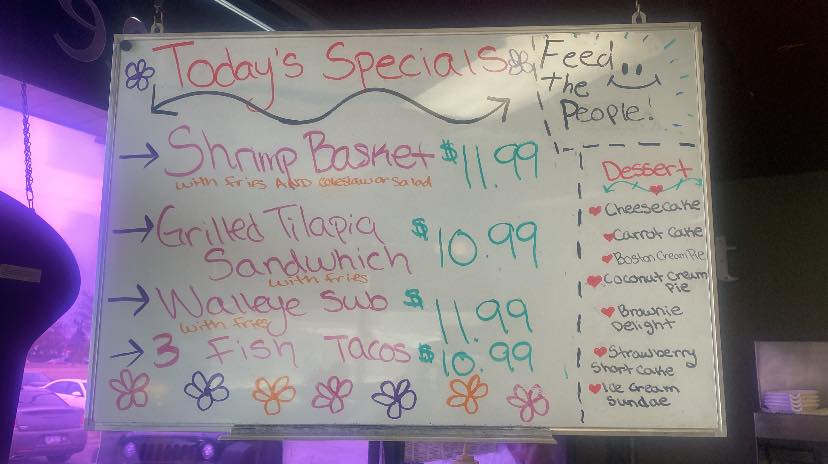 Today's Specials
Feed
the
People!
→ Shrimp Basket $11.99
with fries AND coleslaw or salad
→ Grilled Tilapia
Sandwhich $10.99
with fries
→ Walleye Sub $11.99
with fries
→ 3 Fish Tacos $10.99
Dessert
Cheesecake
Carrot Cake
Boston Cream Pie
Coconut Cream
Pie
Brownie
Delight
Strawberry
Short Cake
Ice Cream
Sundae